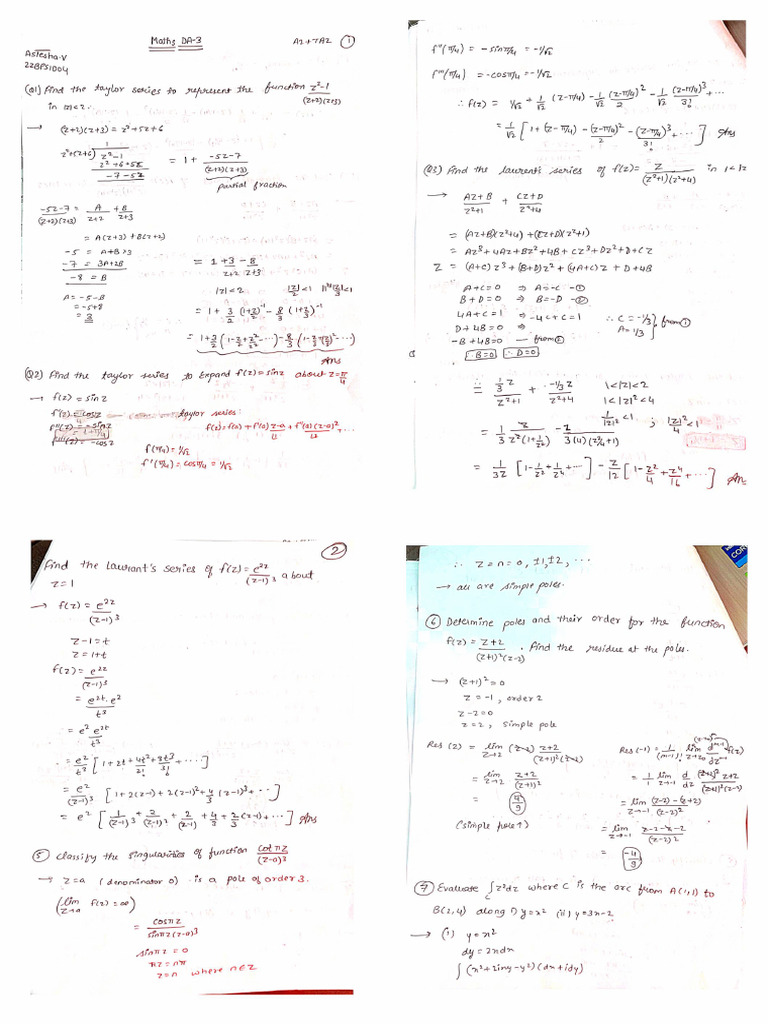 Maths DA-3
A2+TA2 ①
Aslesha.V
22BPS1004
Q1) Find the taylor series to represent the function z²-1 / (z+2)(z+3)
in |z|<2.
→ (z+2)(z+3) = z²+5z+6
1
z²+5z+6) z²-1
z²+6+5z
-7-5z
= 1 + -5z-7 / (z+2)(z+3)
partial fraction
-5z-7 / (z+2)(z+3) = A/z+2 + B/z+3
= A(z+3)+B(z+2)
-5 = A+B×3
-7 = 3A+2B
-8 = B
A = -5-B
= -5+8
= 3
= 1 + 3/z+2 - 8/z+3
|z|<2 |z|/2<1 |z|/3<1
= 1 + 3/2 (1+z/2)⁻¹ - 8/3 (1+z/3)⁻¹
= 1+3/2 (1-z/2+z²/2²-⋯) - 8/3 (1-z/3+(z/3)²-⋯)
Ans
Q2) Find the taylor series to Expand f(z)=sinz about z=π/4
→ f(z) = sinz
f'(z) = cosz
f''(z) = -sinz
f'''(z) = -cosz
taylor series:
f(z) = f(a) + f'(a) z-a/1! + f''(a)(z-a)²/2! + ⋯
f(π/4) = 1/√2
f'(π/4) = cosπ/4 = 1/√2
f''(π/4) = -sinπ/4 = -1/√2
f'''(π/4) = -cosπ/4 = -1/√2
∴ f(z) = 1/√2 + 1/√2 (z-π/4) - 1/√2 (z-π/4)²/2 - 1/√2 (z-π/4)³/3! + ⋯
= 1/√2 [1+(z-π/4) - (z-π/4)²/2 - (z-π/4)³/3! + ⋯] Ans
Q3) Find the laurent's series of f(z) = z / (z²+1)(z²+4) in 1<|z
→ Az+B / z²+1 + Cz+D / z²+4
= (Az+B)(z²+4)+(Cz+D)(z²+1)
= Az³+4Az+Bz²+4B+Cz³+Dz²+D+Cz
z = (A+C)z³+(B+D)z²+(4A+C)z+D+4B
A+C=0 ⇒ A=-C -①
B+D=0 ⇒ B=-D -②
4A+C=1 ⇒ -4C+C=1 ∴ C=-1/3 A=1/3 } from ①
D+4B=0 ⇒
-B+4B=0 — from ②
∴ B=0 ∴ D=0
= 1/3 z / z²+1 + -1/3 z / z²+4 1<|z|<2
1<|z|²<4
1/|z|²<1 ; |z|²/4<1
= 1/3 z / z²(1+1/z²) - z / 3(4)(z²/4+1)
= 1/3z [1-1/z²+1/z⁴+⋯] - z/12 [1-z²/4+z⁴/16+⋯] Ans
②
Find the Laurant's series of f(z) = e²ᶻ/(z-1)³ about
z=1
→ f(z) = e²ᶻ/(z-1)³
z-1=t
z=1+t
f(z) = e²ᶻ/(z-1)³
= e²ᵗ.e²/t³
= e² e²ᵗ/t³
= e²/t³ [1+2t+4t²/2!+8t³/3!+⋯]
= e²/(z-1)³ [1+2(z-1)+2(z-1)²+4/3(z-1)³+⋯]
= e² [1/(z-1)³ + 2/(z-1)² + 2/(z-1) + 4/3 + 2/3(z-1)+⋯] Ans
⑤ Classify the singularities of function cotπz/(z-a)³
→ z=a (denominator 0) is a pole of order 3.
(lim z→a f(z)=∞)
= cosπz / sinπz(z-a)³
sinπz = 0
πz = nπ
z=n where n∈Z
∴ z=n=0, ±1, ±2, ⋯
→ all are simple poles.
⑥ Determine poles and their order for the function
f(z) = z+2 / (z+1)²(z-2) . Find the residue at the poles.
→ (z+1)²=0
z=-1, order 2
z-2=0
z=2, simple pole
Res (2) = lim z→2 (z-2) z+2 / (z+1)²(z-2)
= lim z→2 z+2 / (z+1)²
= 4/9
(simple pole ↑)
Res(-1) = 1/(m-1)! lim z→z₀ dᵐ⁻¹/dzᵐ⁻¹ f(z)
= 1/1 lim z→-1 d/dz (z+1)² z+2 / (z+1)²(z-2)
= lim z→-1 (z-2)-(z+2) / (z-2)²
= lim z→-1 z-2-z-2 / (z-2)²
= -4/9
⑦ Evaluate ∫ z²dz where C is the arc from A(1,1) to
B(2,4) along i) y=x² (ii) y=3x-2
→ (i) y=x²
dy=2xdx
∫(x²+2ixy-y²)(dx+idy)